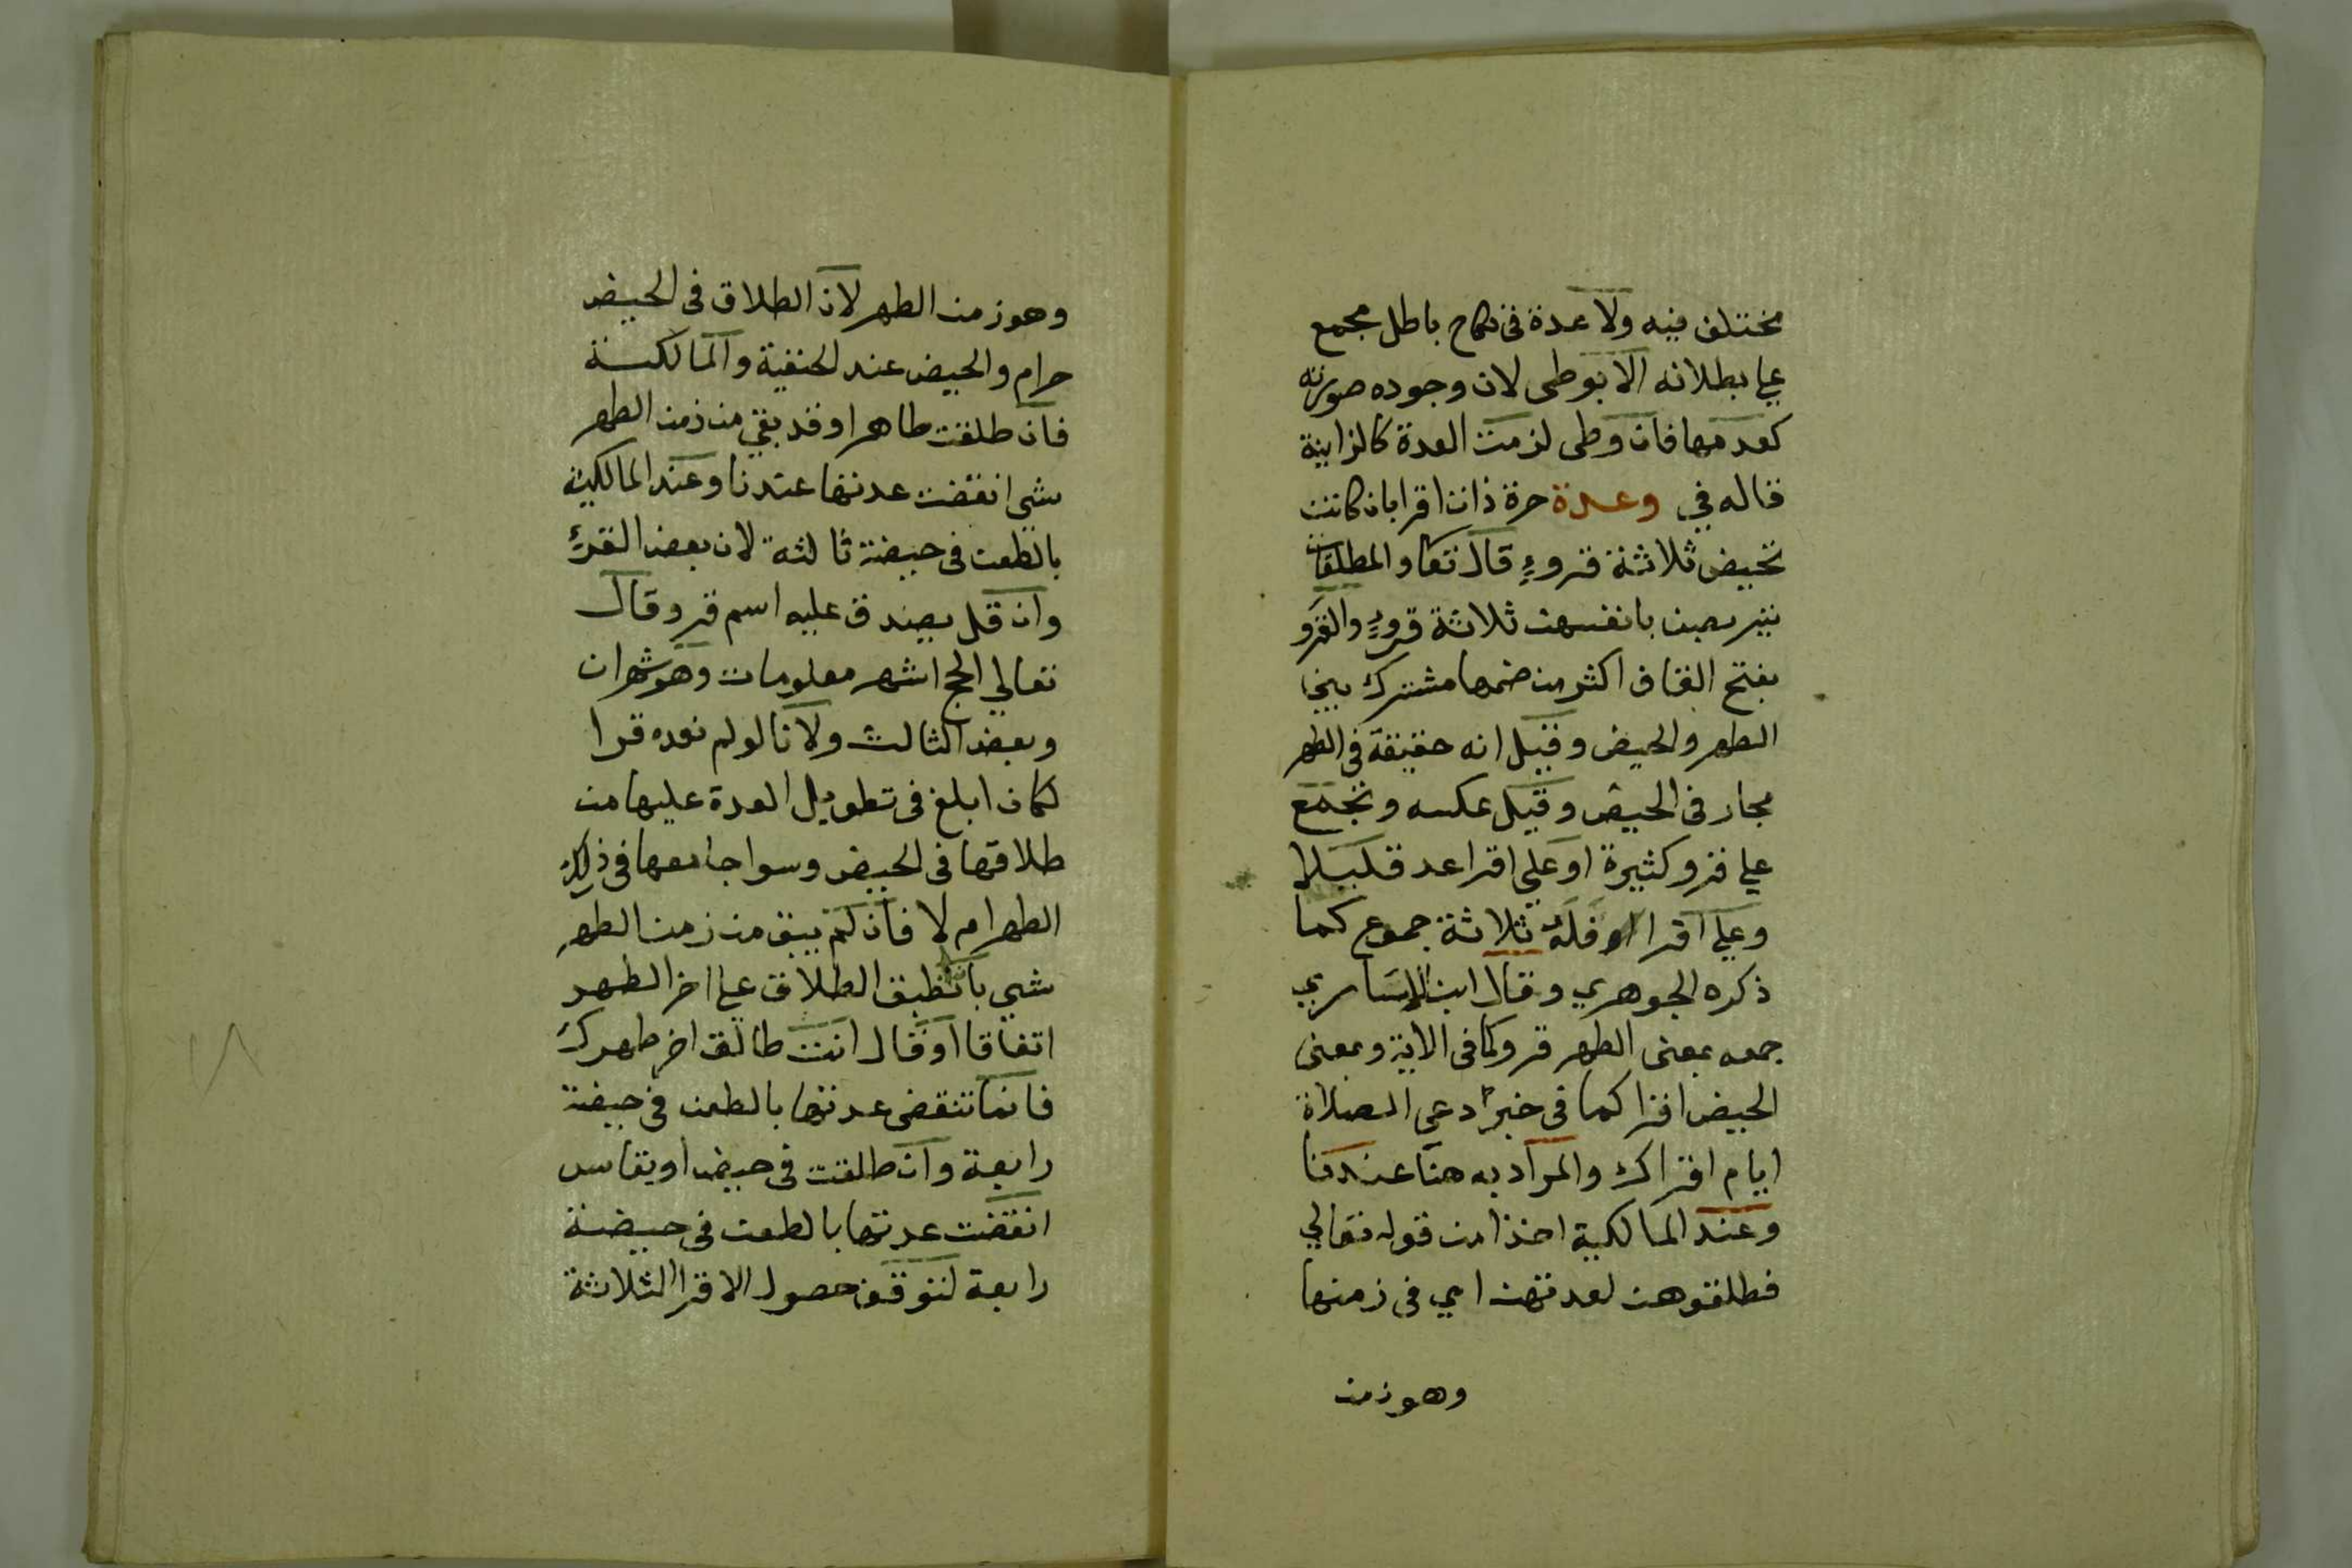 مختلف فيه ولا عدة في نكاح باطل مجمع
علي بطلانه الا بوطى لان وجوده صورته
كعدمها فان وطى لزمت العدة كالزانية
قاله في وعدة حرة ذات اقرا بان كانت
تحيض ثلاثة قروءٍ قال تعا والمطلقات
يتربصن بانفسهن ثلاثة قروءٍ والقرو
بفتح القاف اكثر من ضمها مشترك بين
الطهر والحيض وقيل انه حقيقة في الطهر
مجاز في الحيض وقيل عكسه وتجمع
علي قرو كثيرة او علي اقرا عدد قليلا
وعلي اقرا فله ثلاثة جموع كما
ذكره الجوهري وقال ابن الانباري
جمعه بمعنى الطهر قرو كما في الاية وبمعنى
الحيض اقرا كما في خبر دعي الصلاة
ايام اقراك والمراد به هنا عندنا
وعند المالكية اخذا من قوله تعالي
فطلقوهن لعدتهن اي في زمنها
وهو زمن
وهو زمن الطهر لان الطلاق في الحيض
حرام والحيض عند الحنفية والمالكية
فان طلقت طاهرا وقد بقي من زمن الطهر
شي انقضت عدتها عندنا وعند المالكية
بالطعن في حيضة ثالثة لان بعض القرء
وان قل يصدق عليه اسم قرو قال
تعالي الحج اشهر معلومات وهو شهران
وبعض الثالث ولانا لو لم نعده قرا
لكان ابلغ في تطويل العدة عليها من
طلاقها في الحيض وسوا جامعها في ذلك
الطهر ام لا فان لم يبق من زمن الطهر
شي بان انطبق الطلاق علي اخر الطهر
اتفاقا او قال انت طالق اخر طهرك
فانما تنقضي عدتها بالطعن في حيضة
رابعة وان طلقت في حيض او نفاس
انقضت عدتها بالطعن في حيضة
رابعة لتوقف حصول الاقرا الثلاثة